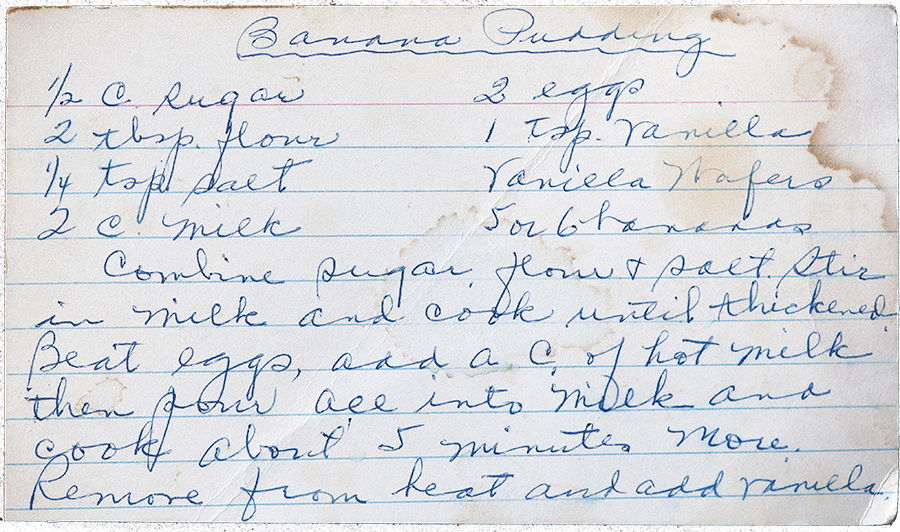 Banana Pudding
1/2 C. sugar
2 tbsp. flour
1/4 tsp salt
2 C. Milk
2 eggs
1 Tsp. Vanilla
Vanilla Wafers
5 or 6 bananas
Combine sugar, flour & salt. Stir
in Milk and cook until thickened.
Beat eggs, add a C. of hot milk
then pour all into Milk and
cook about 5 minutes More.
Remove from heat and add vanilla.